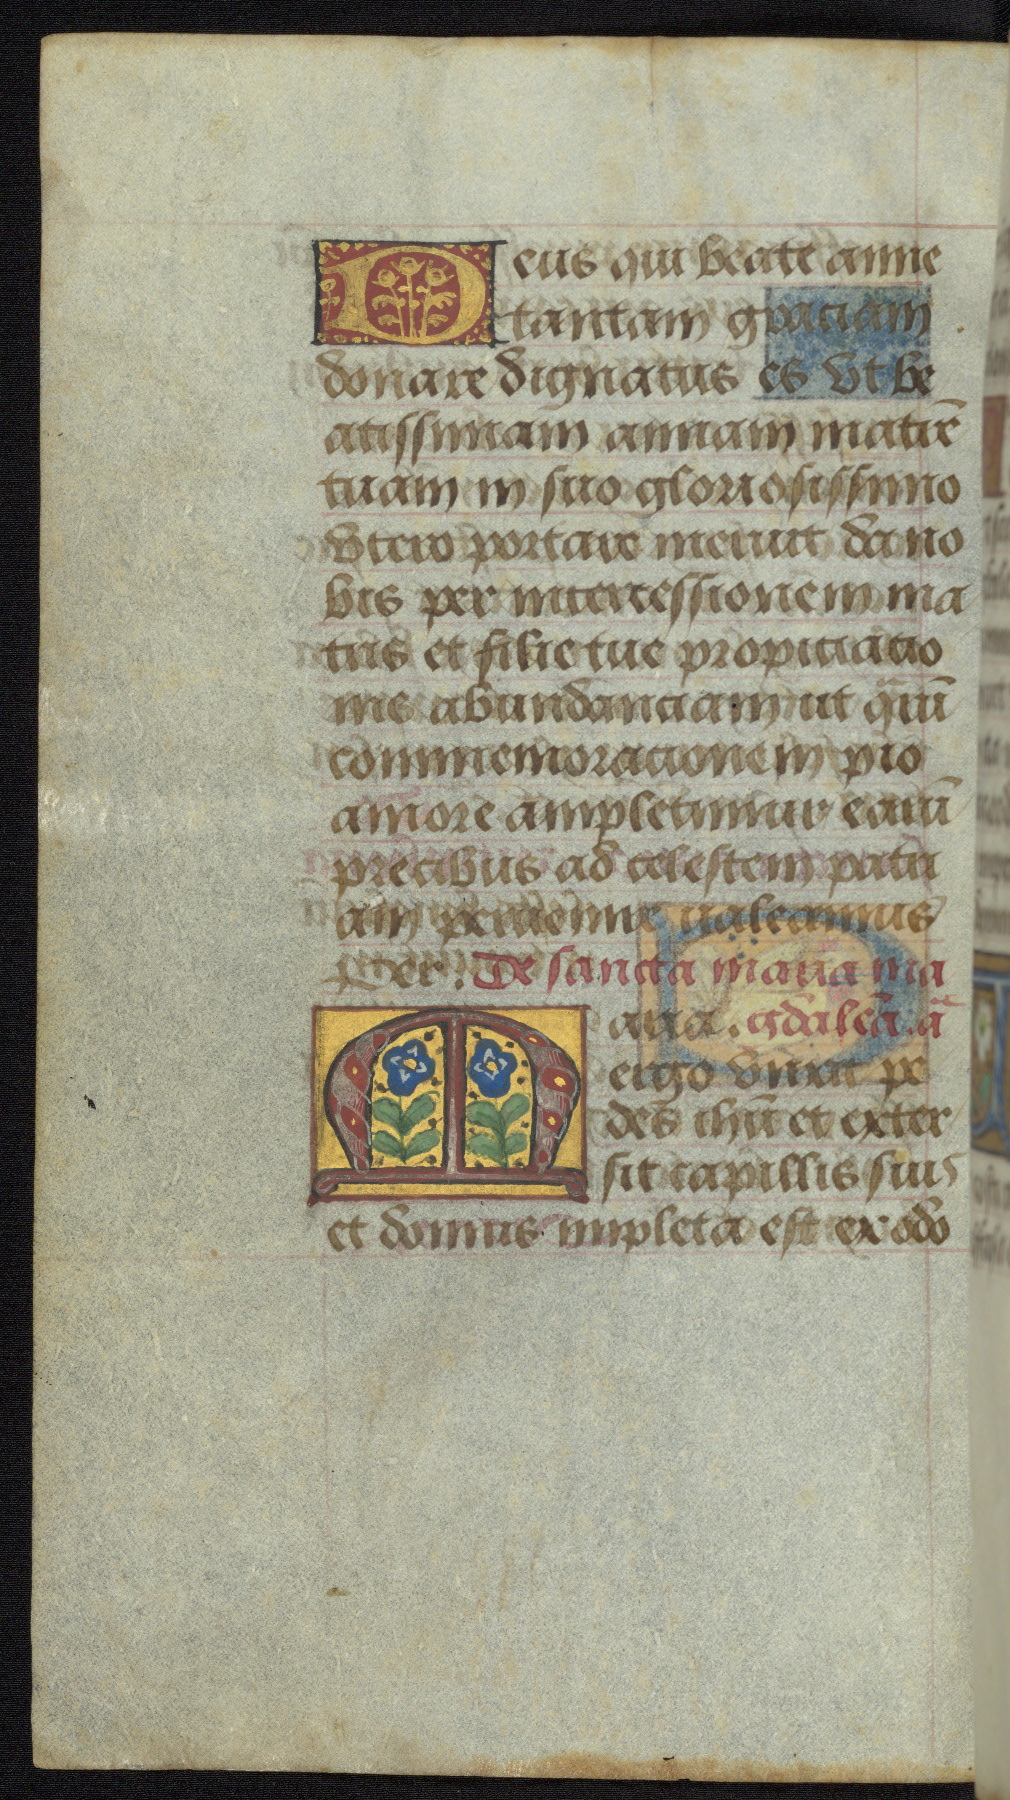 Deus qui beate anne
tantam graciam
donare dignatus es Vt be
atissimam annam matrē
tuam in suo gloriosissimo
Vtero portare meruit da no
bis per intercessionem ma
tris et filie tue propiciacio
nis abundanciam ut qͣrū
commemoracionem pio
amore amplectimur earū
precibus ad celestem patri
am peruenire ualeamus
per. De sancta maria ma
Maria. gdalēa. aͣ
ergo Vnxit pe
des ihū et exter
sit capillis suis
et domus impleta est ex odo